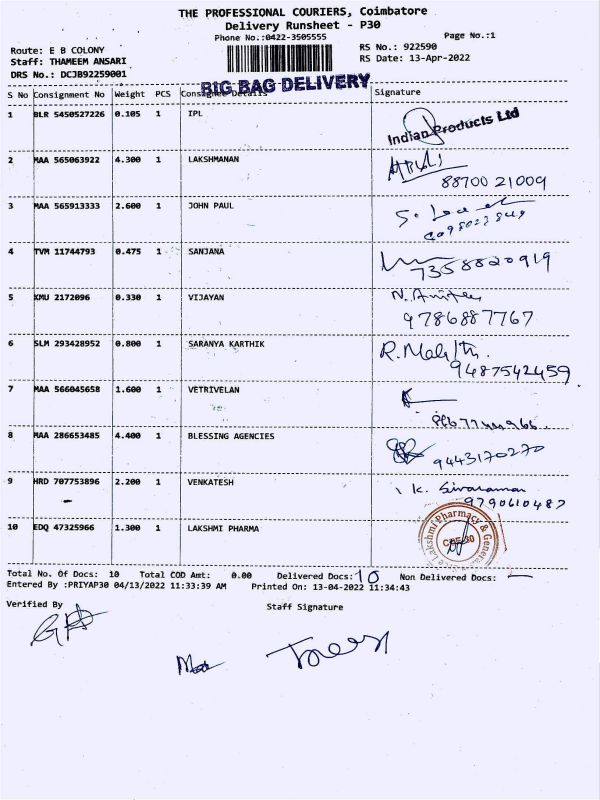 THE PROFESSIONAL COURIERS, Coimbatore
Delivery Runsheet - P30
Phone No.:0422-3505555
Page No.:1
Route: E B COLONY
RS No.: 922590
Staff: THAMEEM ANSARI
RS Date: 13-Apr-2022
DRS No.: DCJB92259001
BIG BAG DELIVERY
S No Consignment No Weight PCS Consignee Details Signature
1 BLR 5450527226 0.105 1 IPL
Indian Products Ltd
2 MAA 565063922 4.300 1 LAKSHMANAN
88700 21009
3 MAA 565913333 2.600 1 JOHN PAUL
4 TVM 11744793 0.475 1 SANJANA
7358820919
5 KMU 2172096 0.330 1 VIJAYAN
9786887767
6 SLM 293428952 0.800 1 SARANYA KARTHIK
9487542459
7 MAA 566045658 1.600 1 VETRIVELAN
8 MAA 286653485 4.400 1 BLESSING AGENCIES
9443170270
9 HRD 707753896 2.200 1 VENKATESH
K. Sivaraman
9790610487
10 EDQ 47325966 1.300 1 LAKSHMI PHARMA
Lakshmi Pharmacy & General
CBE-30
Total No. Of Docs: 10 Total COD Amt: 0.00 Delivered Docs: 10 Non Delivered Docs: —
Entered By :PRIYAP30 04/13/2022 11:33:39 AM Printed On: 13-04-2022 11:34:43
Verified By
Staff Signature